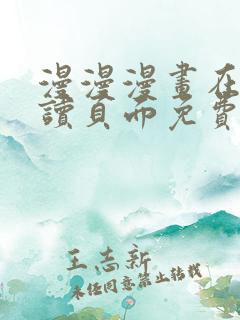 漫漫漫畫在
讀頁面免費
王志新
未經同意禁止轉載